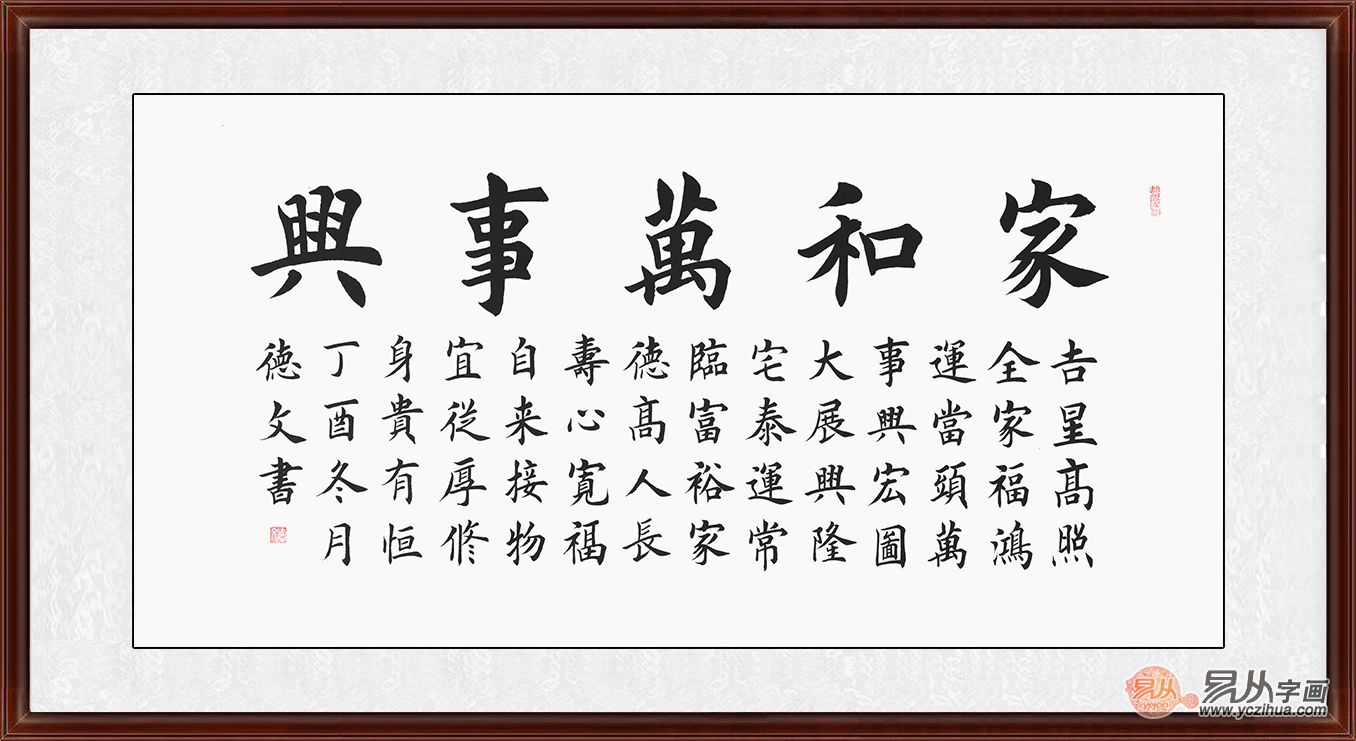 家和萬事興
吉星高照
全家福鴻
運當頭萬
事興宏圖
大展興隆
宅泰運常
臨富裕家
德高人長
壽心寬福
自来接物
宜從厚修
身貴有恒
丁酉冬月
德文書
易从
yejon
易从字画
www.yczihua.com